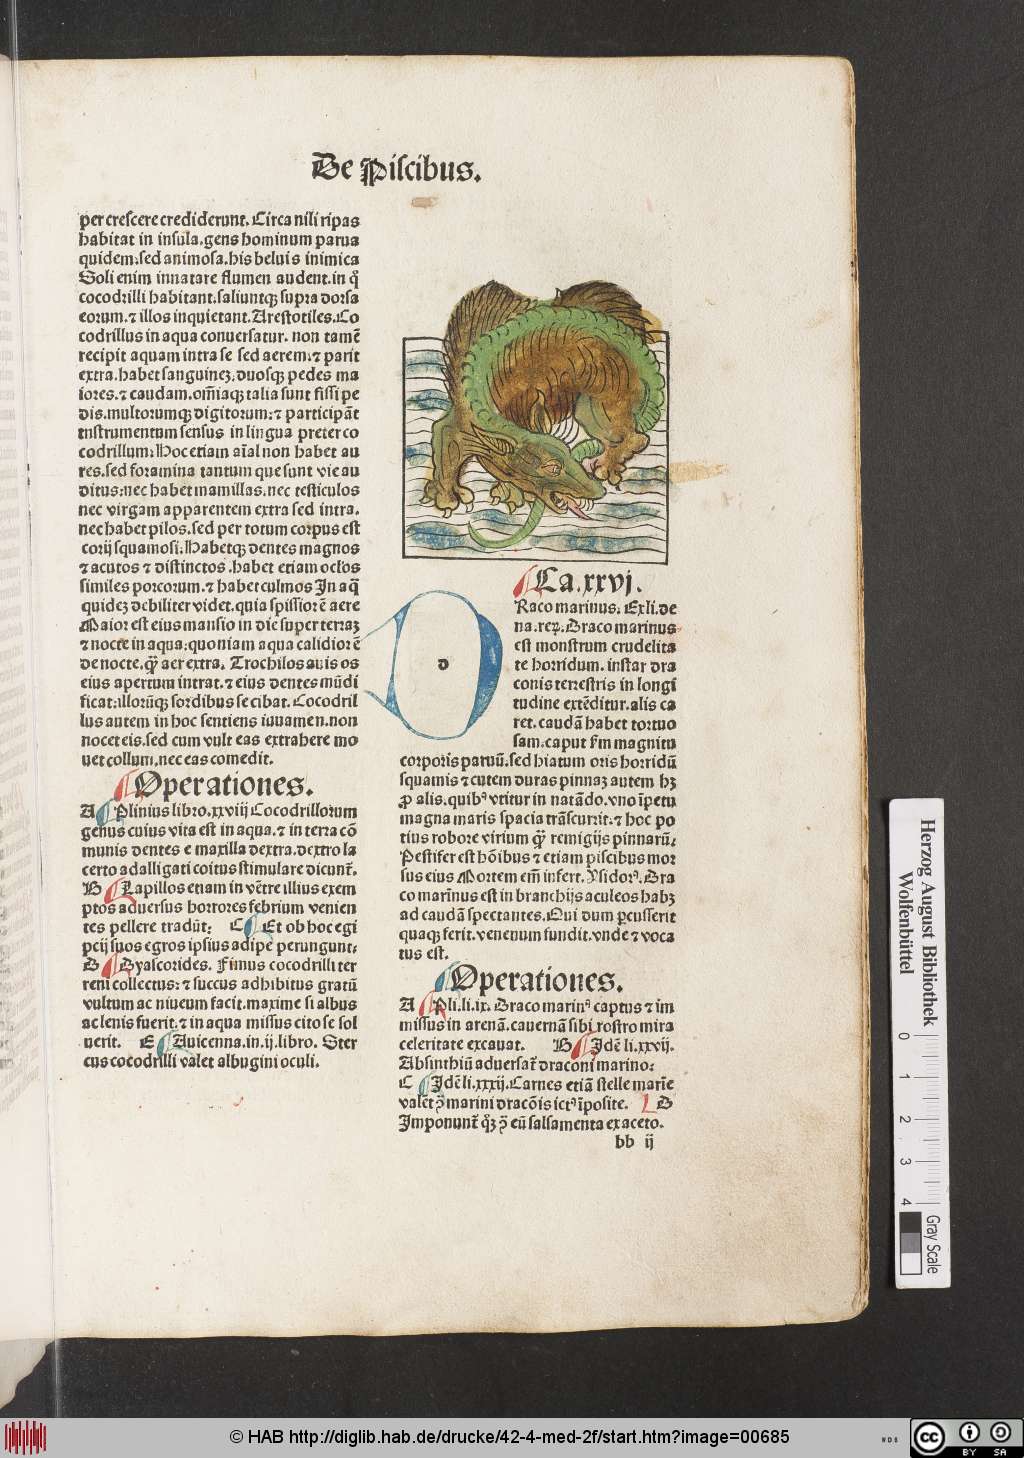 De Piscibus.
per crescere crediderunt. Circa nili ripas
habitat in insula. gens hominum parua
quidem: sed animosa. his beluis inimica
Soli enim innatare flumen audent. in q̃
cocodrilli habitant. saliuntqꝫ supra dorsa
eorum. ⁊ illos inquietant. Arestotiles. Co
codrillus in aqua conuersatur. non tamē
recipit aquam intra se sed aerem: ⁊ parit
extra. habet sanguineꝫ. duosqꝫ pedes ma
iores. ⁊ caudam. om̄iaqꝫ talia sunt fissi pe
dis. multorumqꝫ digitorum: ⁊ participāt
instrumentum sensus in lingua preter co
codrillum: Hoc etiam aīal non habet au
res. sed foramina tantum que sunt vie au
ditus: nec habet mamillas. nec testiculos
nec virgam apparentem extra sed intra.
nec habet pilos. sed per totum corpus est
corij squamosi: Habetqꝫ dentes magnos
⁊ acutos ⁊ distinctos. habet etiam oclos
similes porcorum. ⁊ habet culmos In aq̄
quideꝫ debiliter videt. quia spissior ē aere
Maior est eius mansio in die super terraꝫ
⁊ nocte in aqua: quoniam aqua calidior ē
de nocte. q̄ꝫ aer extra. Trochilos auis os
eius apertum intrat. ⁊ eius dentes mūdi
ficat: illorūqꝫ sordibus se cibat. Cocodril
lus autem in hoc sentiens iuuamen. non
nocet eis. sed cum vult eas extrahere mo
uet collum. nec eas comedit.
Operationes.
A Plinius libro. xxviij Cocodrillorum
genus cuius vita est in aqua. ⁊ in terra cō
munis dentes e maxilla dextra. dextro la
certo adalligati coitus stimulare dicunt̄.
B Lapillos etiam in vētre illius exem
ptos aduersus horrores febrium venien
tes pellere tradūt: C Et ob hoc egi
pcij suos egros ipsius adipe perungunt:
D Dyascorides. Fimus cocodrilli ter
reni collectus: ⁊ succus adhibitus gratū
vultum ac niueum facit. maxime si albus
ac lenis fuerit. ⁊ in aqua missus cito se sol
uerit. E Auicenna. in. ij. libro. Ster
cus cocodrilli valet albugini oculi.
Ca. xxvj.
d
Raco marinus. Ex li. de
na. reꝝ. Draco marinus
est monstrum crudelita
te horridum. instar dra
conis terrestris in longi
tudine extēditur. alis ca
ret. caudā habet tortuo
sam. caput f̄m magnitu
corporis paruū. sed hiatum oris horridū
squamis ⁊ cutem duras pinnaꝫ autem hꝫ
ꝓ alis. quibꝰ vtitur in natādo. vno īpetu
magna maris spacia trāscurrit. ⁊ hoc po
tius robore virium q̄ꝫ remigijs pinnarū:
Pestifer est hōibus ⁊ etiam piscibus mor
sus eius Mortem em̄ infert. Ysidorꝰ. Dra
co marinus est in branchijs aculeos habꝫ
ad caudā spectantes. Qui dum ꝑcusserit
quaqꝫ ferit. venenum fundit. vnde ⁊ voca
tus est.
Operationes.
A Pli. li. ix. Draco marinꝰ captus ⁊ im
missus in arenā. cauernā sibi rostro mira
celeritate excauat. B Idē li. xxvij.
Absinthiū aduersat̄ draconi marino:
C Idē li. xxxij. Carnes etiā stelle marie
valet ꝯ̄ marini dracōis ictꝰ īposite. D
Imponunt̄ q̄ꝫ ꝯ̄ eū salsamenta ex aceto.
bb ij
Herzog August Bibliothek
Wolfenbüttel
0 1 2 3 4
Gray Scale
© HAB http://diglib.hab.de/drucke/42-4-med-2f/start.htm?image=00685
WDB
cc BY SA